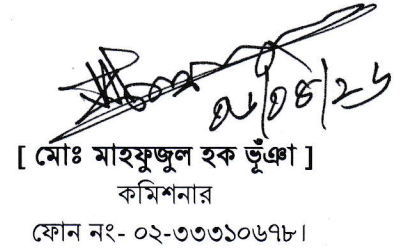 ০৬/০৪/২৬
[ মোঃ মাহফুজুল হক ভূঁঞা ]
কমিশনার
ফোন নং- ০২-৩৩৩১০৬৭৮।